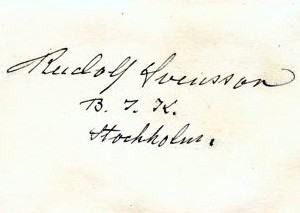 Rudolf Svensson
B. T. K.
Stockholm.